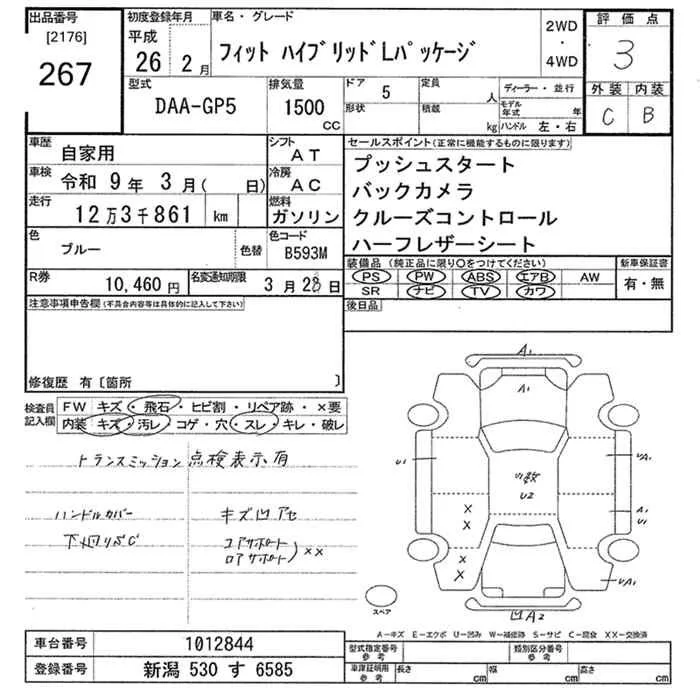 出品番号
[2176]
267
初度登録年月
平成
26 2月
車名・グレード
フィット ハイブリッドLパッケージ
2WD
・
4WD
評価点
3
外装 内装
C B
型式
DAA-GP5
排気量
1500
CC
ドア
5
形状
定員
人
積載
kg
ディーラー・並行
モデル年式 年
ハンドル 左・右
車歴
自家用
シフト
AT
車検
令和 9年 3月( 日)
冷房
AC
走行
12万3千861 km
燃料
ガソリン
色
ブルー
色替
色コード
B593M
R券
10,460円
名変通知期限
3月28日
セールスポイント(正常に機能するものに限ります)
プッシュスタート
バックカメラ
クルーズコントロール
ハーフレザーシート
装備品(純正品に限り○をつけてください)
PS PW ABS エアB AW
SR ナビ TV カワ
新車保証書
有・無
後日品
注意事項申告欄(不具合内容等は具体的に記入して下さい)
修復歴 有〔箇所 〕
検査員
記入欄
FW キズ・飛石・ヒビ割・リペア跡・×要
内装 キズ・汚レ・コゲ・穴・スレ・キレ・破レ
トランスミッション点検表示有
ハンドルカバー
下廻りサビC
キズ凹アセ
コアサポート
ロアサポート
××
A1
A1
U1
UA1
U1数
U2
A1
U1
×
×
×
×
UA1
凹A2
スペア
A−キズ E−エクボ U−凹み W−補修跡 S−サビ C−腐食 XX−交換済
車台番号
1012844
登録番号
新潟 530 す 6585
型式指定番号
参考
類別区分番号
参考
車庫証明用
参考
長さ cm
幅 cm
高さ cm